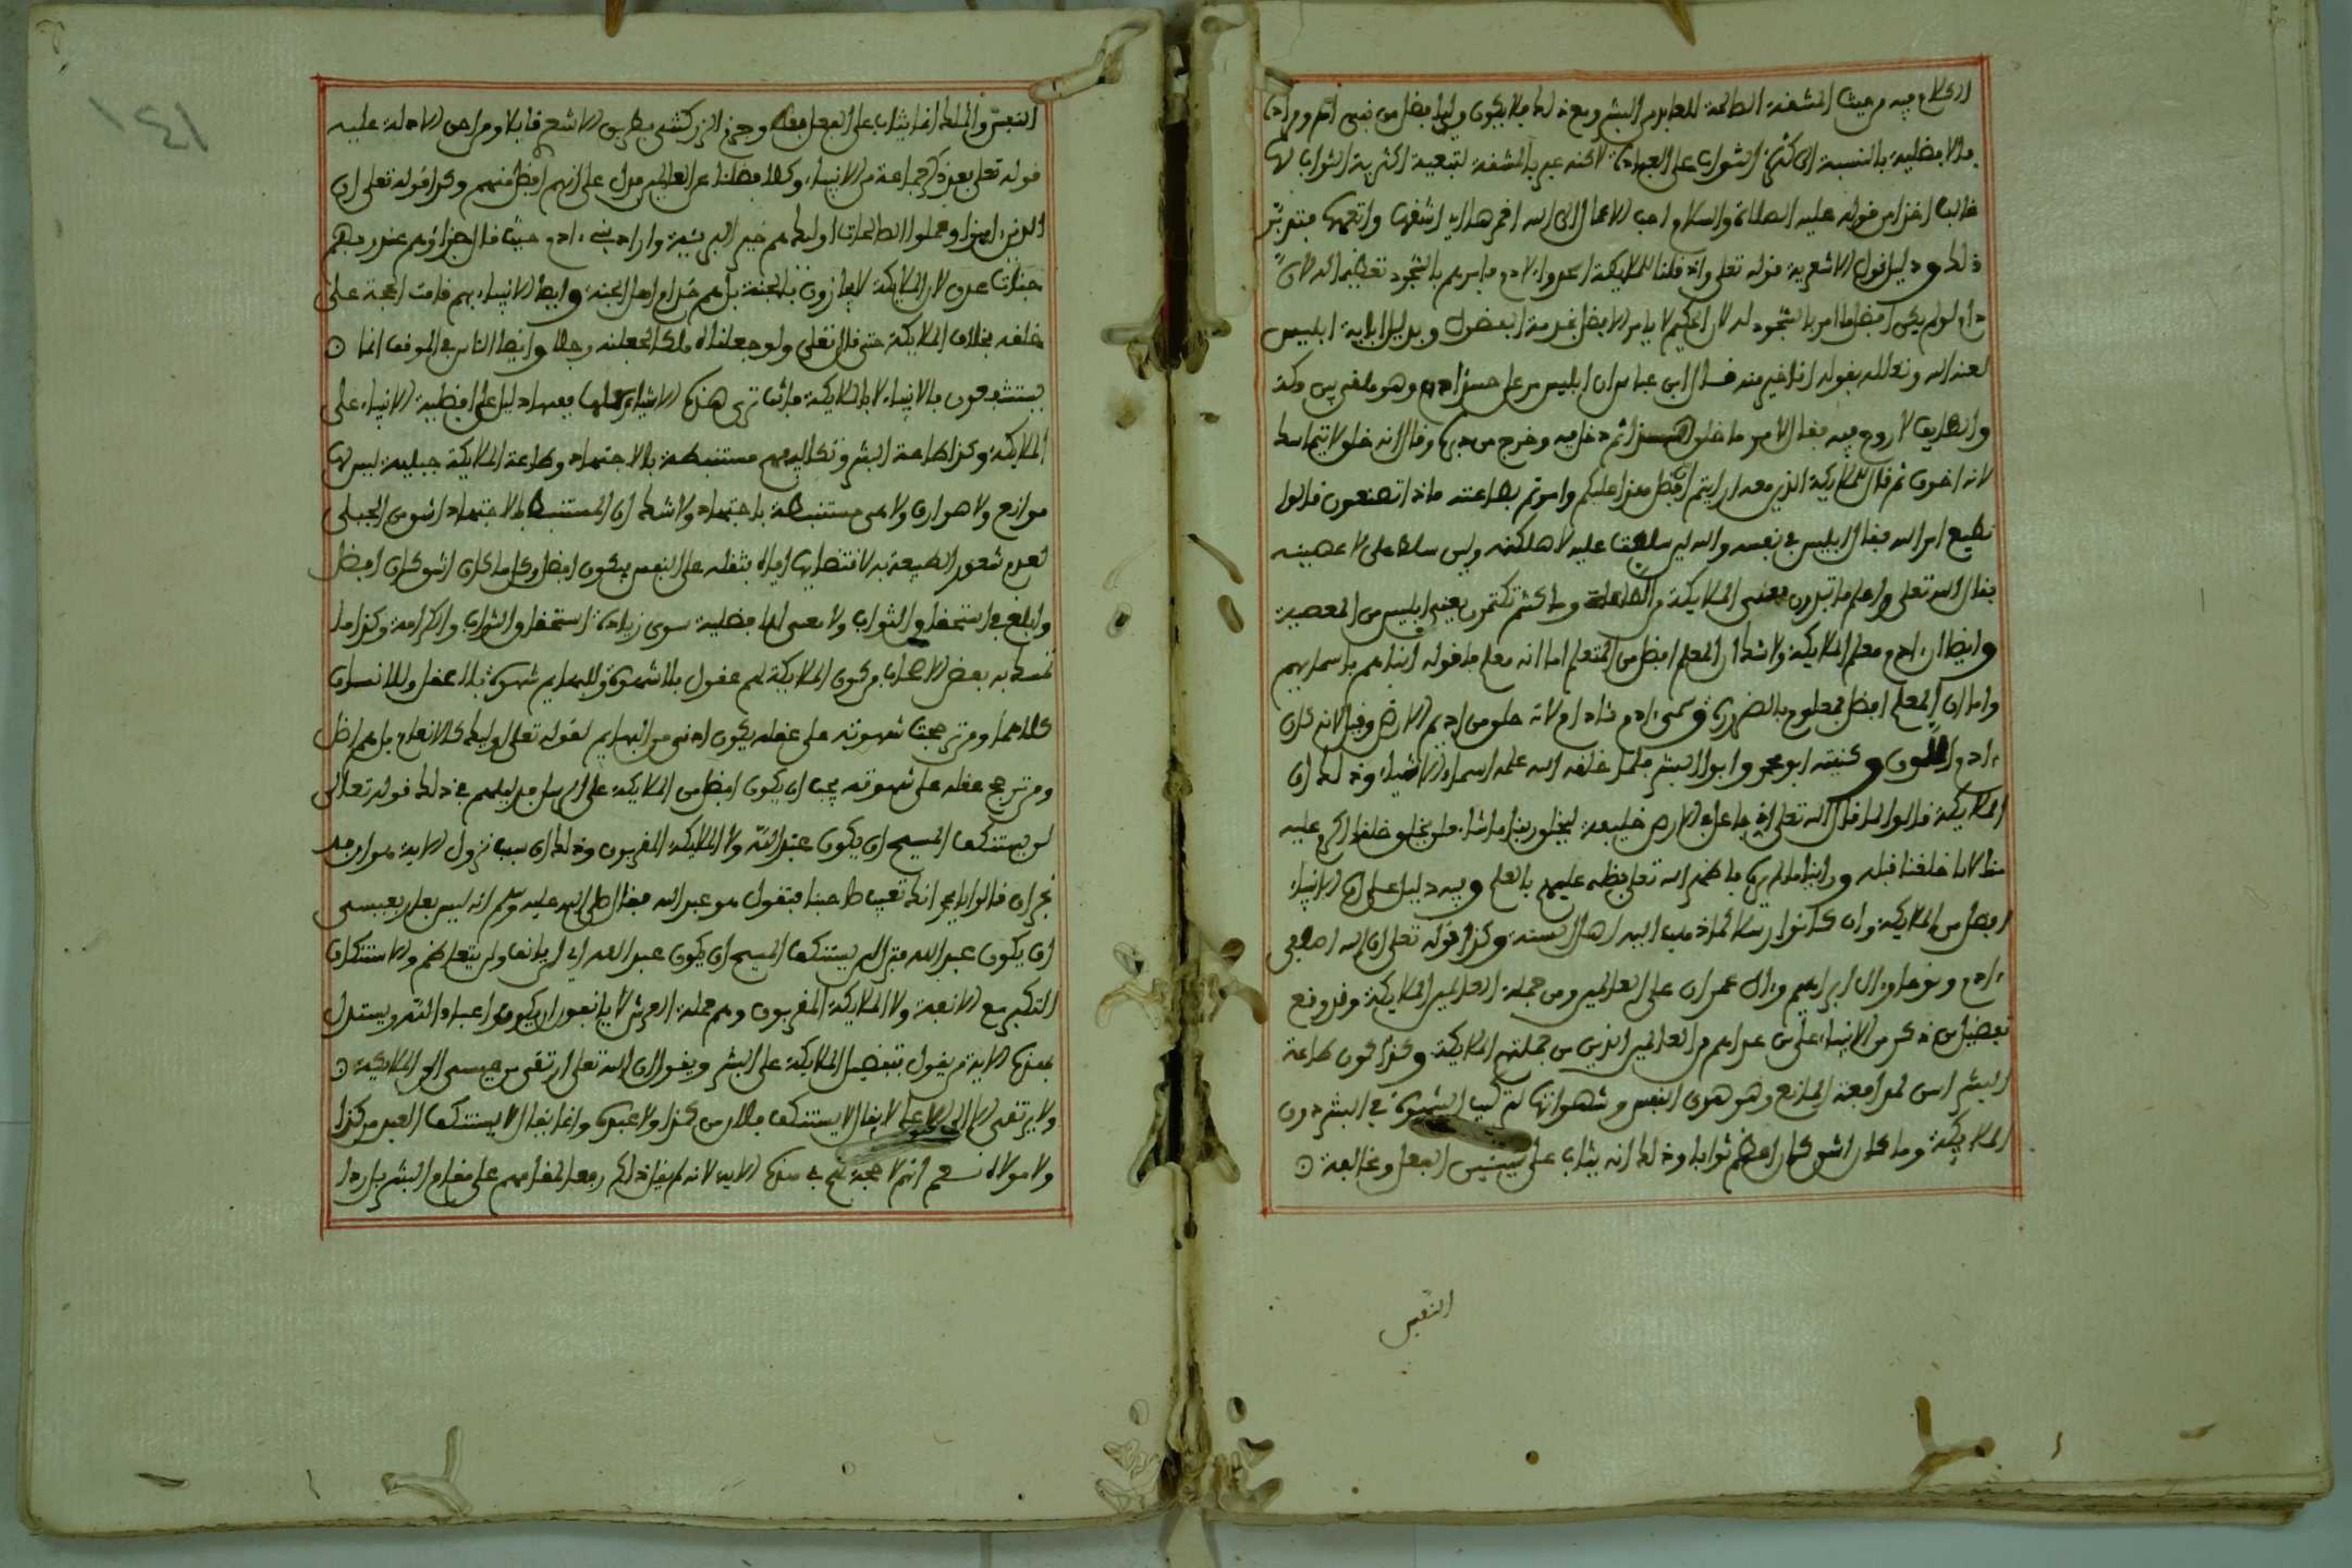 الكلام فيه من حيث المشقة الصالحة للعابد من البشر وبعد ذلك فلا يكون وليا افضل من نبي
فالافضلية بالنسبة الى كثرة الثواب على العبادة لاكنه عبر بالمشقة لتبعية اكثرية الثواب لها
غالبا اخذا من قوله عليه الصلاة والسلام احب الاعمال الى الله احمزها اي اشقها واتعبها
ذلك ودليل قول الاشعرية قوله تعلى واذ قلنا للملايكة اسجدوا لادم فامرهم بالسجود تعظيما له لان
ادم لو لم يكن افضل ما امر بالسجود له لان الحكيم لا يامر الافضل بخدمة المفضول وبدليل اباية ابليس
لعنه الله وتعلله بقوله انا خير منه قال ابن عباس ان ابليس مر على جسد ادم وهو ملقى بين مكة
والطايف لا روح فيه فقال لامر ما خلق هذا ثم دخل من فيه وخرج من دبره وقال انه خلق لا يتماسك
لانه اجوف ثم قال للملايكة الذين معه ارايتم ان فضل هذا عليكم وامرتم بطاعته ماذا تصنعون قالوا
نطيع امر الله فقال ابليس في نفسه والله لين سلطت عليه لاهلكنه ولين سلط على لاعصينه
فقال الله تعلى واعلم ما تبدون يعني الملايكة من الطاعة وما كنتم تكتمون يعني ابليس من المعصية
وايضا ان ادم معلم الملايكة ولا شك ان المعلم افضل من المتعلم اما انه معلم فلقوله انبئهم باسمايهم
واما ان المعلم افضل فمعلوم بالضرورة وسمي ادم ادم لانه خلق من اديم الارض وقيل لانه كان
ادم اللون وكنيته ابو محمد وابو البشر فلما خلقه الله علمه اسماء الاشياء وذلك ان
الملايكة قالوا لما قال الله تعلى اني جاعل في الارض خليفة ليخلق ربنا ما شاء فلن يخلق خلقا اكرم عليه
منا لانا خلقنا قبله وراينا ما لم يره فاظهر الله تعلى فضله عليهم بالعلم وفيه دليل على ان الانبياء
افضل من الملايكة وان كانوا رسلا كما ذهب اليه اهل السنة وكذا قوله تعلى ان الله اصطفى
ادم ونوحا وال ابراهيم وال عمران على العالمين ومن جملة العالمين الملايكة وقد وقع
تفضيل من ذكر من الانبياء على من عداهم من العالمين الذين من جملتهم الملايكة وكذا كون طاعة
البشر اشق لمدافعة الموانع وهو هوى النفس وشهواتها لتركيب الشهوة في البشر دون
الملايكة وما كان اشق كان اعظم ثوابا وذلك انه يثاب على شيئين الفعل ومخالفة
النفس
النفس والملك انما يثاب على الفعل فقط وجزم الزركشي بطريق الاشعري قايلا ومن احسن الادلة عليه
قوله تعلى بعد ذكر جماعة من الانبياء وكلا فضلنا على العالمين فدل على انهم افضل منهم وكذا قوله تعلى ان
الذين امنوا وعملوا الصالحات اوليك هم خير البريئة واراد بني ادم حيث قال جزاؤهم عند ربهم
جنات عدن لان الملايكة لا يجازون بالجنة بل هم خدام اهل الجنة وايضا الانبياء بهم قامت الحجة على
خلقه بخلاف الملايكة حتى قال تعلى ولو جعلناه ملكا لجعلنه رجلا وايضا الناس في الموقف انما
يستشفعون بالانبياء لا بالملايكة فانت ترى هذه الاشياء كلها فيها دليل على افضلية الانبياء على
الملايكة وكذا طاعة البشر وتكاليفهم مستنبطة بالاجتهاد وطاعة الملايكة جبلية ليس لها
موانع ولا هوادي ولا هي مستنبطة باجتهاد ولا شك ان المستنبط بالاجتهاد اشق من الجبلي
لعدم شعور الطبيعة به لاقتضايها اياه بثقله على النفس فيكون افضل وكل ما كان اشق كان افضل
وابلغ في استحقاق الثواب ولا معنى للافضلية سوى زيادة استحقاق الثواب والكرامة وكذا ما
تمسك به بعض الاصحاب من كون الملايكة لهم عقول بلا شهوة وللبهايم شهوة بلا عقل وللانسان
كلاهما ومن ترجحت شهوته على عقله يكون ادنى من البهايم لقوله تعلى اوليك كالانعام بل هم اضل
ومن ترجح عقله على شهوته يجب ان يكون افضل من الملايكة على الرسل فدليلهم في ذلك قوله تعالى
لن يستنكف المسيح ان يكون عبدا لله ولا الملايكة المقربون وذلك ان سبب نزول الاية هو ان وفد
نجران قالوا يا محمد انك تعيب صاحبنا فتقول هو عبد الله فقال صلى الله عليه وسلم انه ليس بعار بعيسى
ان يكون عبد الله فنزل لن يستنكف المسيح ان يكون عبد الله اي لن يانف ولن يتعاظم والاستنكاف
التكبر مع الانفة ولا الملايكة المقربون وهم حملة العرش لا يانفون ان يكونوا عبادا لله ويستدل
بهذه الاية من يقول بتفضيل الملايكة على البشر ويقول ان الله تعلى ارتقى من عيسى الى الملايكة
ولا يرتقى الا الى الاعلى لا يقال لا يستنكف فلان من كذا ولا عبده وانما يقال لا يستنكف العبد من كذا
ولا مولاه نعم انه لا حجة لهم في هذه الاية لانه لم يقل ذلك رفعا لمقامهم على مقام البشر بل ردا
١٤١